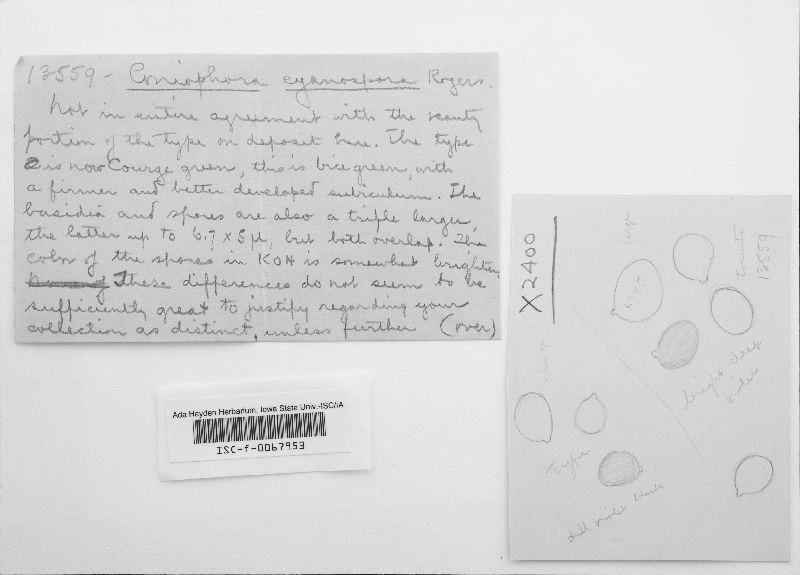 13559 - Coniophora cyanospora Rogers.
Not in entire agreement with the scanty
portion of the type on deposit here. The type
is now Courge green, this is bice green, with
a firmer and better developed subiculum. The
basidia and spores are also a trifle larger,
the latter up to 6.7 x 5 µ, but both overlap. The
color of the spores in KOH is somewhat brighter.
These differences do not seem to be
sufficiently great to justify regarding your
collection as distinct, unless further (over)
Ada Hayden Herbarium, Iowa State Univ.-ISC/IA
ISC-f-0067953
X2400
large
Toronto
13559
bright deep
violet
large
type
dull violet